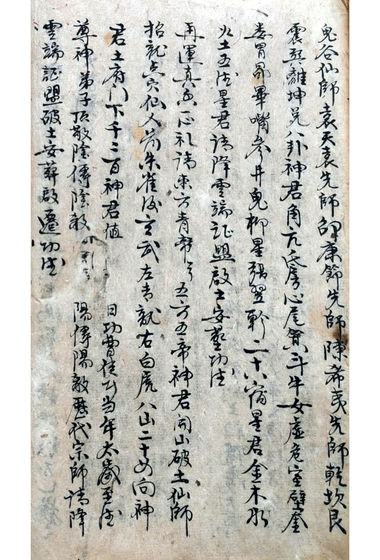 鬼谷仙師袁天袁先師邵康節先師陳希夷先師乾坎艮
震巽離坤兌八卦神君角亢氐房心尾箕斗牛女虛危室壁奎
婁胃昴畢嘴參井鬼柳星張翌軫二十八宿星君金木水
火土五法星君請降雲端証盟啟土安塟功法
再運真香心礼請東方青帝々五方五帝神君開山破土仙師
招龍点穴仙人前朱雀後玄武左青龍右白虎八山二十四向神
君土府門下千二百神君值 日功曹使行当年太歲至
尊神弟子頂敬陰傳陰教 陽傳陽教歷代宗師請降
雲端証盟破土安葬啟遷功法